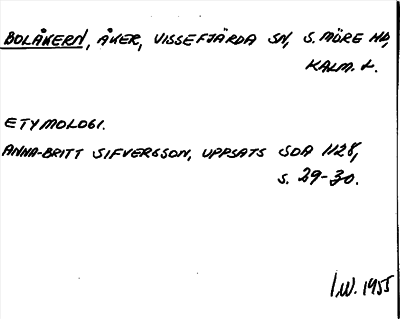 BOLÅKERN, ÅKER, VISSEFJÄRDA SN, S. MÖRE HD,
KALM. L.
ETYMOLOGI.
ANNA-BRITT SIFVERSSON, UPPSATS SOA 1128,
S. 29-30.
I.W. 1955